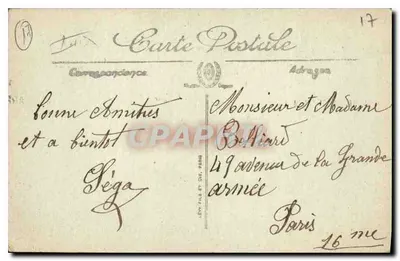 17
Carte Postale
Correspondance
Adresse
bonne Amitiés
et a bientot
Séga
Monsieur et Madame
Belliard
49 avenue de la Grande
armée
Paris
16 me
CPARAMA